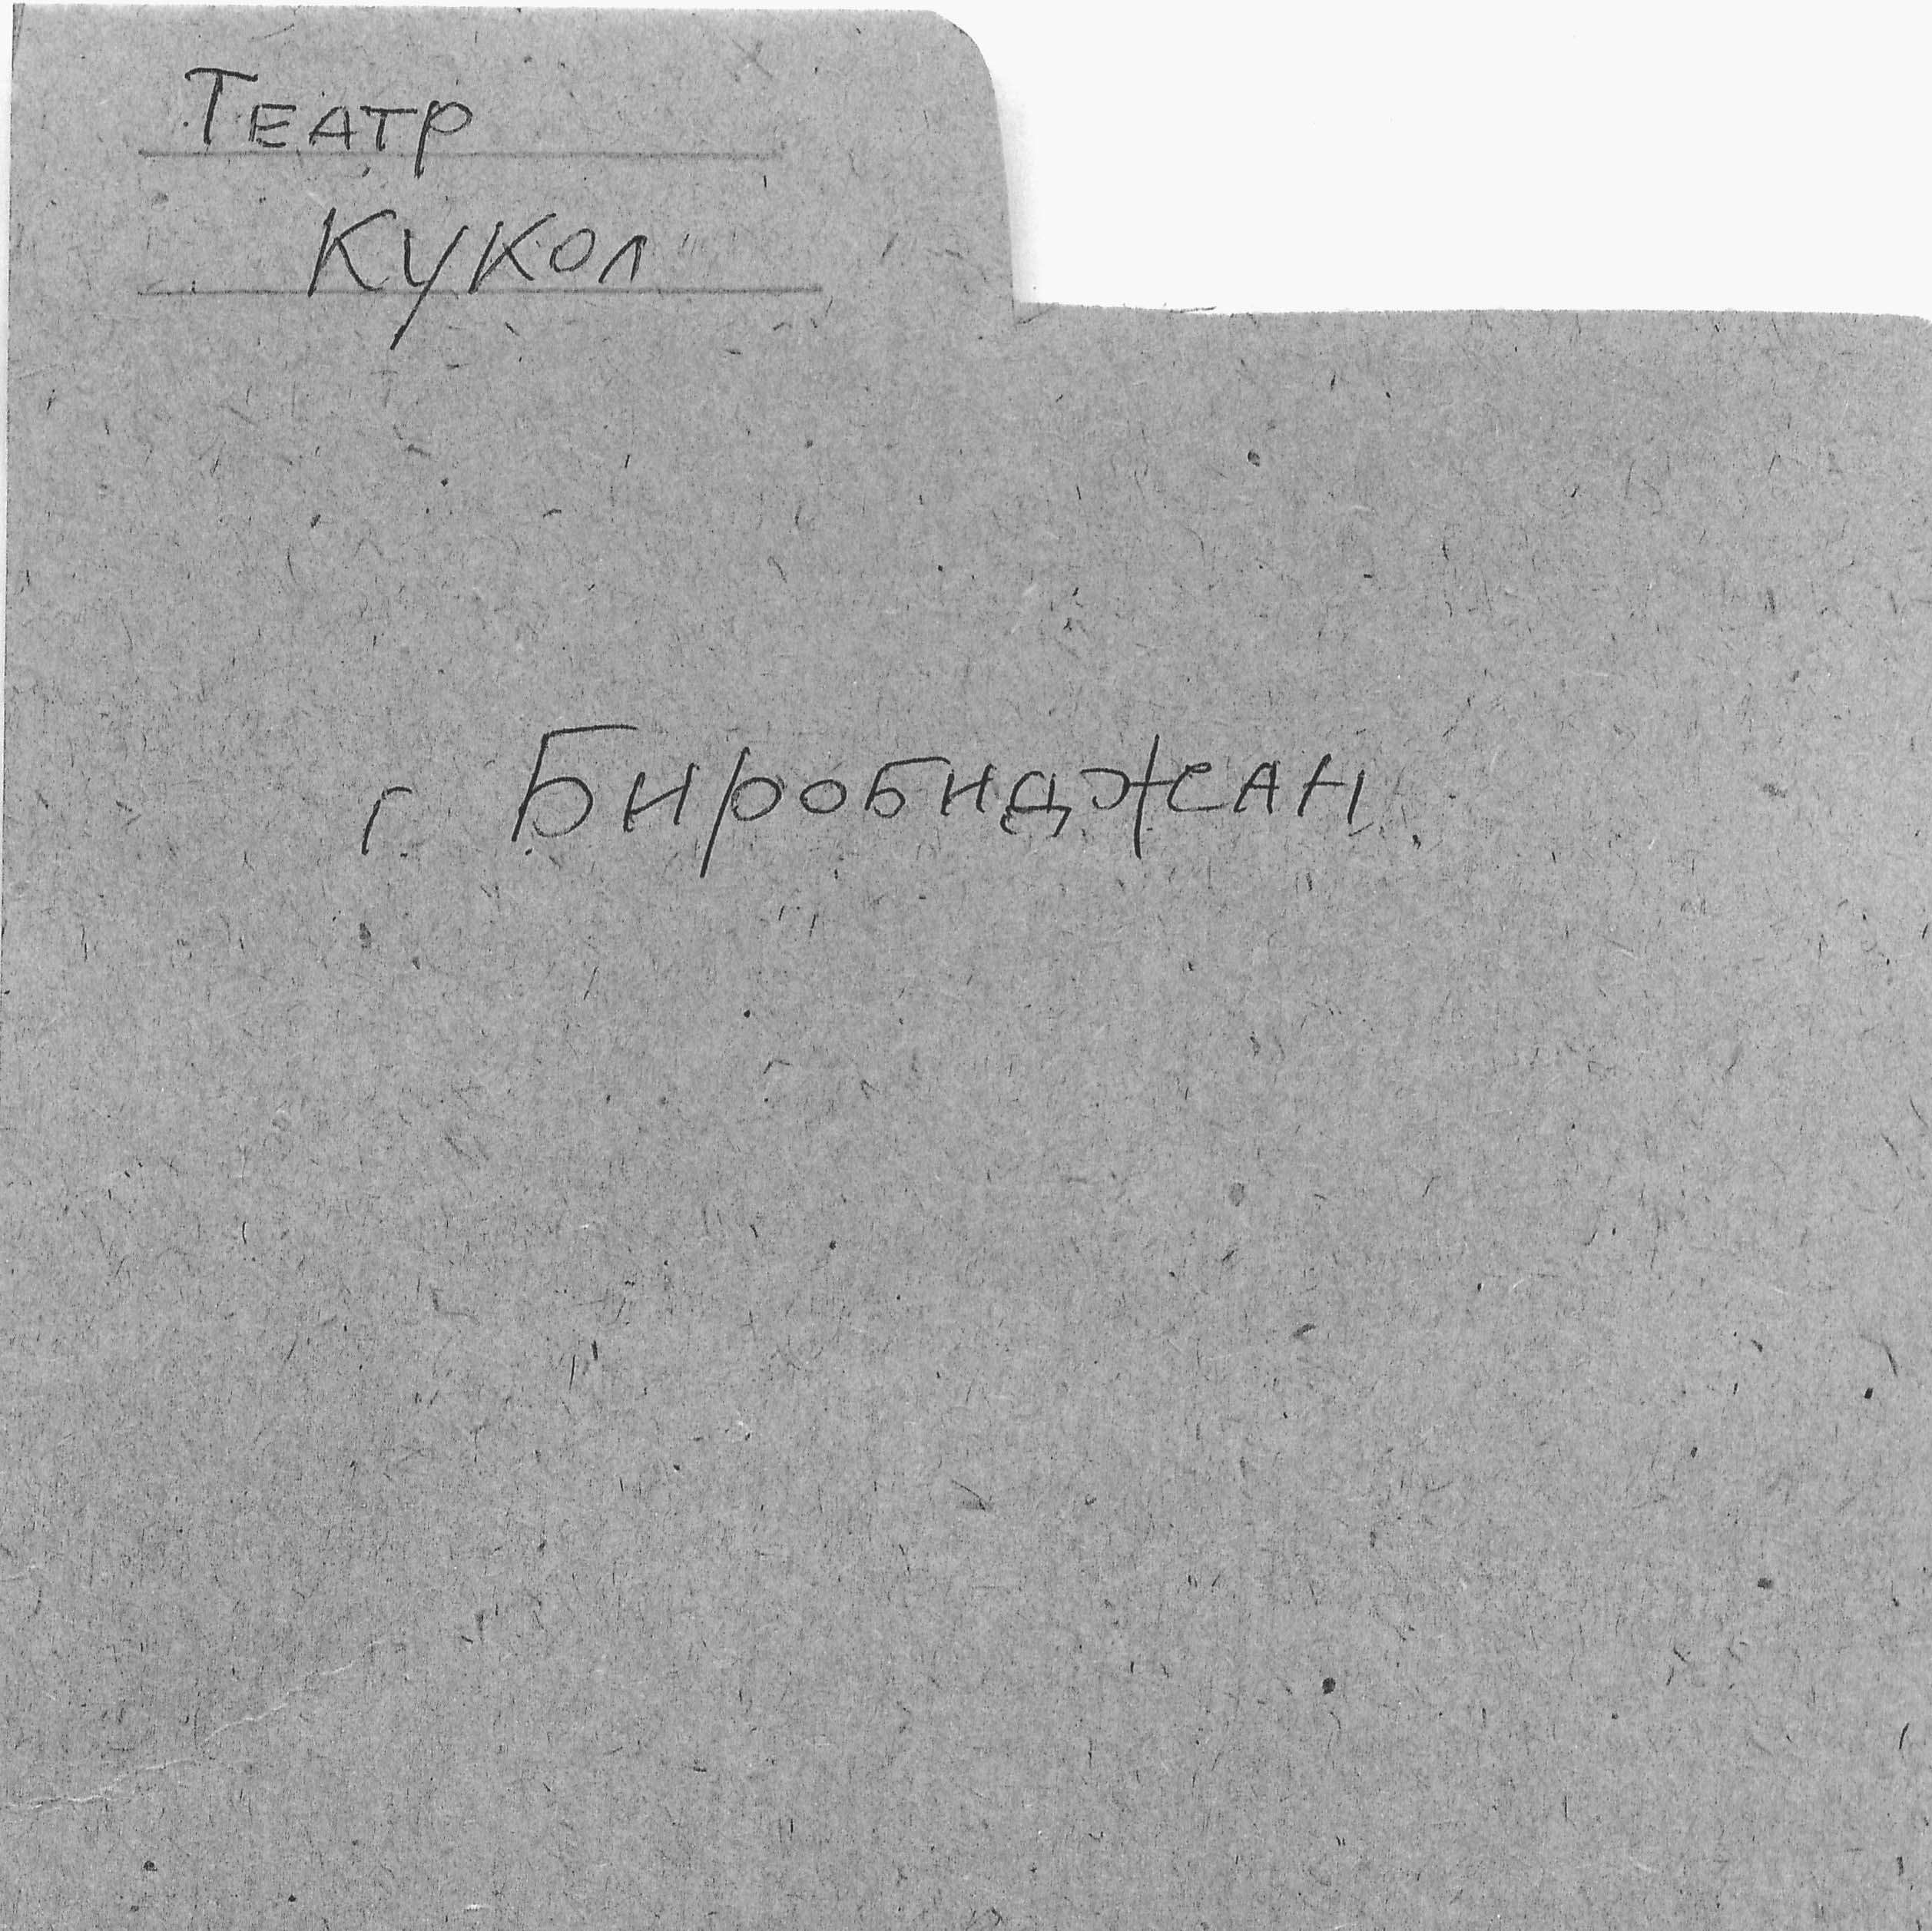 Театр
Кукол
г. Биробиджан.